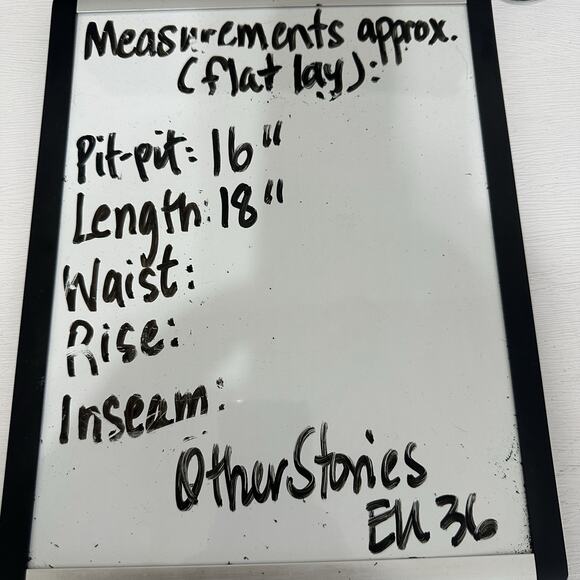 Measurements approx.
(flat lay):
Pit-pit: 16"
Length: 18"
Waist:
Rise:
Inseam:
Other Stories
EU 36